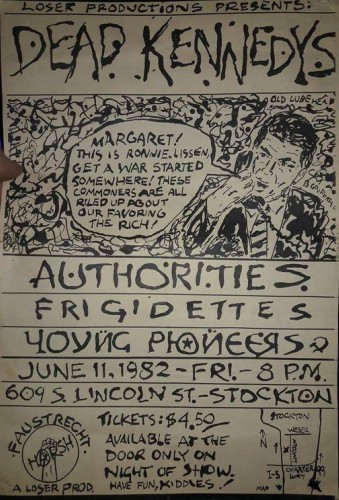 LOSER PRODUCTIONS PRESENTS:
DEAD KENNEDYS
OLD LUBE HEAD
MARGARET!
THIS IS RONNIE. LISSEN,
GET A WAR STARTED
SOMEWHERE! THESE
COMMONERS ARE ALL
RILED UP ABOUT
OUR FAVORING
THE RICH!
AUTHORITIES
FRIGIDETTES
YOUNG PIONEERS
JUNE 11, 1982 - FRI. - 8 P.M.
609 S. LINCOLN ST. - STOCKTON
FAUSTRECHT
HARSH
A LOSER PROD.
TICKETS: $4.50/
AVAILABLE AT THE
DOOR ONLY ON
NIGHT OF SHOW.
HAVE FUN, KIDDIES!
STOCKTON
WEBER
LINCOLN
N
I-5
CHARTER
WAY
99
MAP